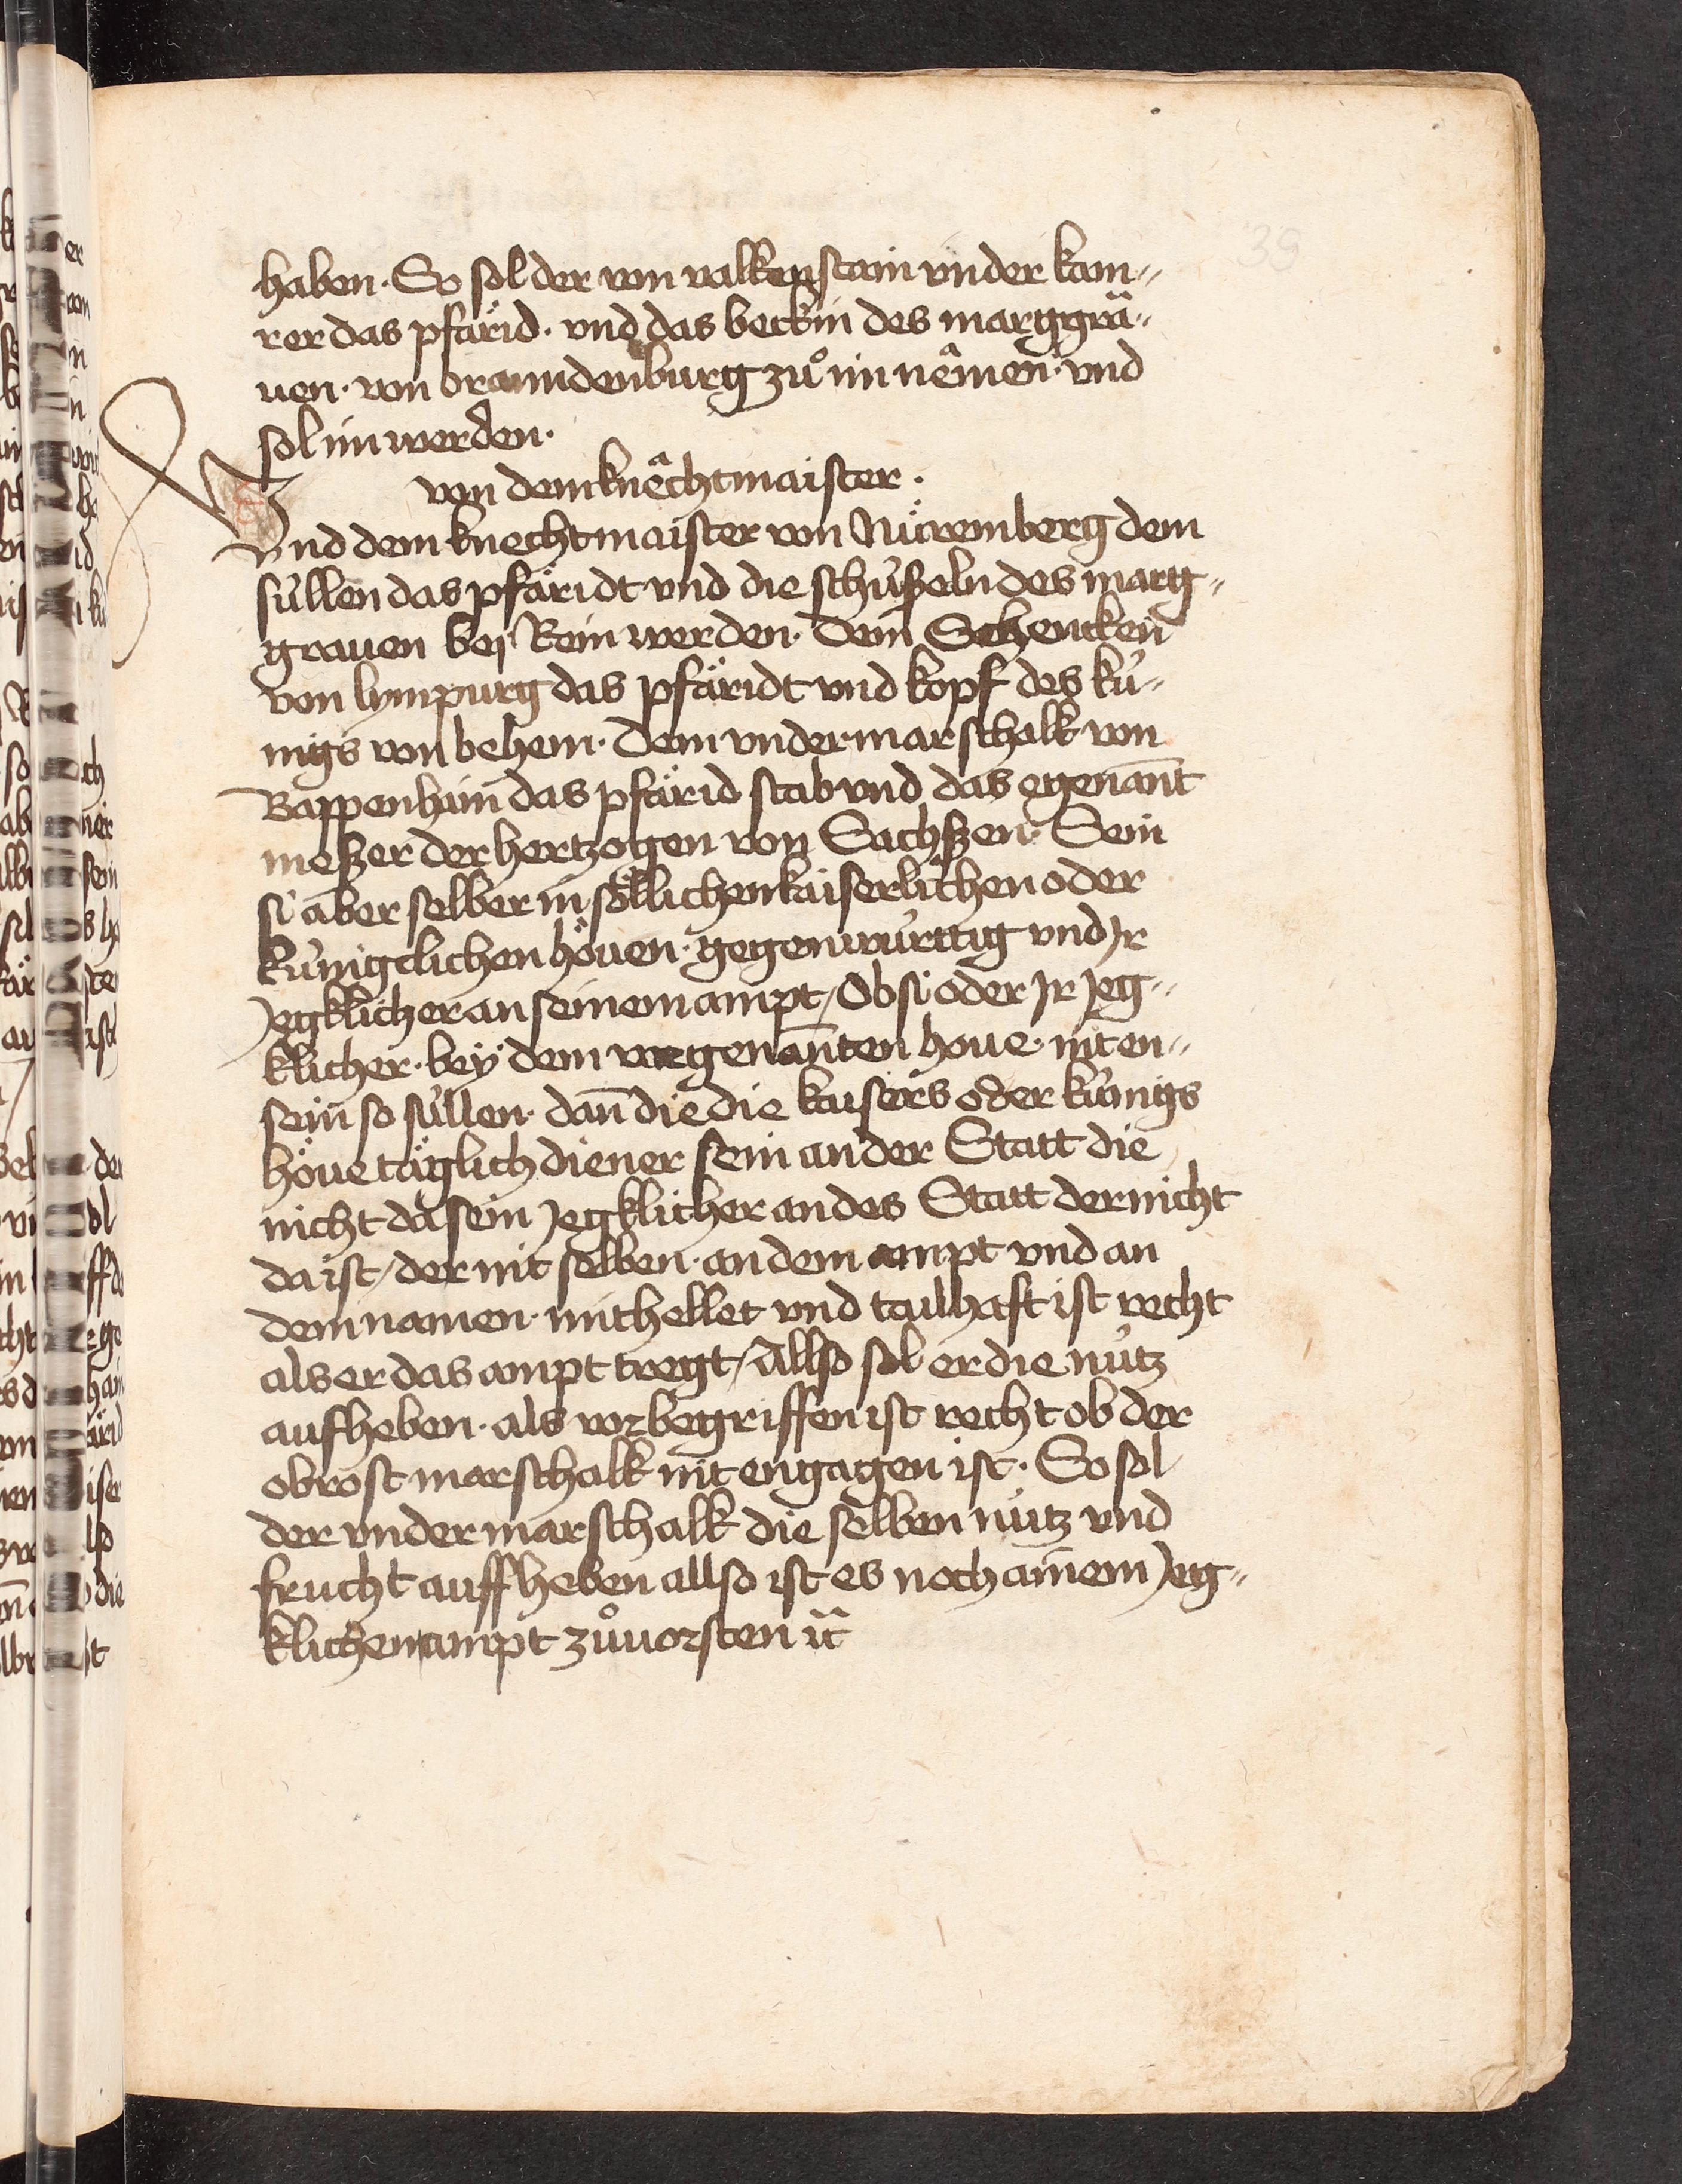 39
haben · So sol der von valkenstain vnder kam„
rer das pfärid · vnd das beckin des marggrä„
uen · von brannndenburg zů im nêmen · vnd
sol im werden ·
von dem knêchtmaister ·
Vnd dem knechtmaister von Nüremberg dem
süllen das pfäridt vnd die schüßeln des marg„
grauen bei Rein werden · Dem Schencken
von lympurg das pfäridt vnd kopf des kü„
nigs von behem · Dem vndermarschalk von
Bappenhaim das pfärid stab vnd das egenant̄
meßer der hertzogen von Sachßen · Sein
si aber selber in söllichen kaiserlichen oder
künigclichen höuen · gegenwürttig vnd Jr
Jegklicher an seinem ampt / Ob si oder Jr Jeg„
klicher · bey dem vorgenan̄ten houe · nit en„
sein so süllen · dan̄ die die kaisers oder künigs
höue täglich diener sein an der Statt die
nicht da sein Jegklicher an des Statt der nicht
da ist / der mit selben · an dem ampt vnd an
dem namen · mithellet vnd tailhaft ist recht
als er das ampt tregt / Allso sol er die nutz
aufheben · als vorbegriffen ist recht ob der
obrost marschalk nit engagen ist · So sol
der vndermarschalk die selben nutz vnd
frucht auffheben allso ist es noch ainem Jeg„
klichem ampt zůuorsten ꝛc̄